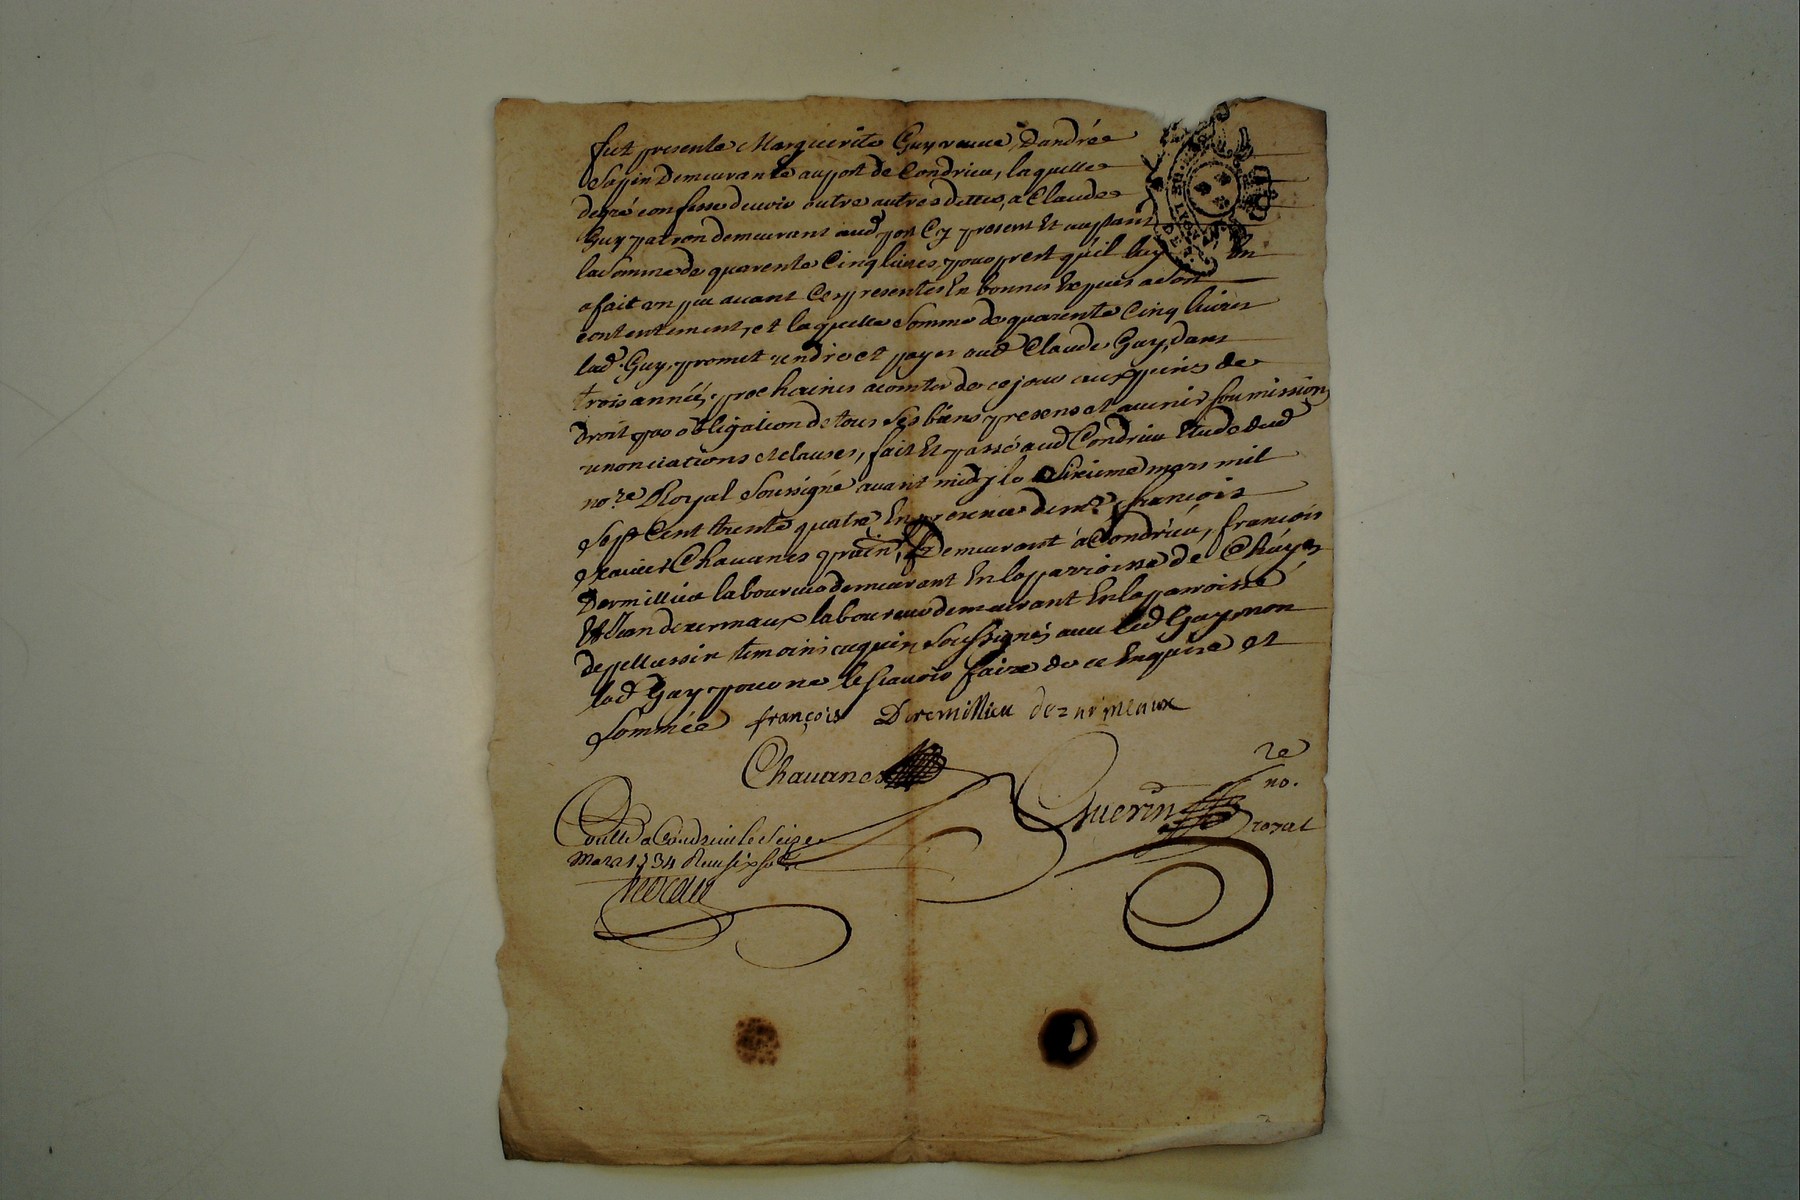 fut presente Marguerite Guy veuve Dandrée
Sapin Demeurante au port de Condrieu, laquelle
degré confesse devoir outre autres dettes, a Claude
Guy patron demeurant aud port Cy present Et
la Somme de quarente Cinq livres, pour prest qu'il luy En
a fait un peu avant Ces presentes En bonnes Especes a son
contentement, et laquelle Somme de quarente Cinq livres
lad. Guy, promet rendre et payer aud Claude Guy, dans
trois années, prochaines a comter de ce jour aux peines de
droit par obligation de tous Ses biens presens et avenir Soumissions
renonciations et clauses, fait Et passé aud Condrieu Etude dud
no.re Royal Soussigné avant midy le Sixieme mars mil
Sept Cent trente quatre, En presence de m.r françois
Xavier Chavanes demeurant à Condrieu, françois
Dormillieu laboureur demeurant En la parroisse de
Et Jean dezermaux laboureur demeurant En la parroisse
de pellussin temoins requis Soussignés avec led Guy non
lad Guy pour ne le Scavoir faire de ce Enquise et
Sommée françois Doremillieu dezormeaux
Chavanes
Guerin no.re royal
Conllé a Condrieu le Seize
Mars 1734 Reçu Six sols